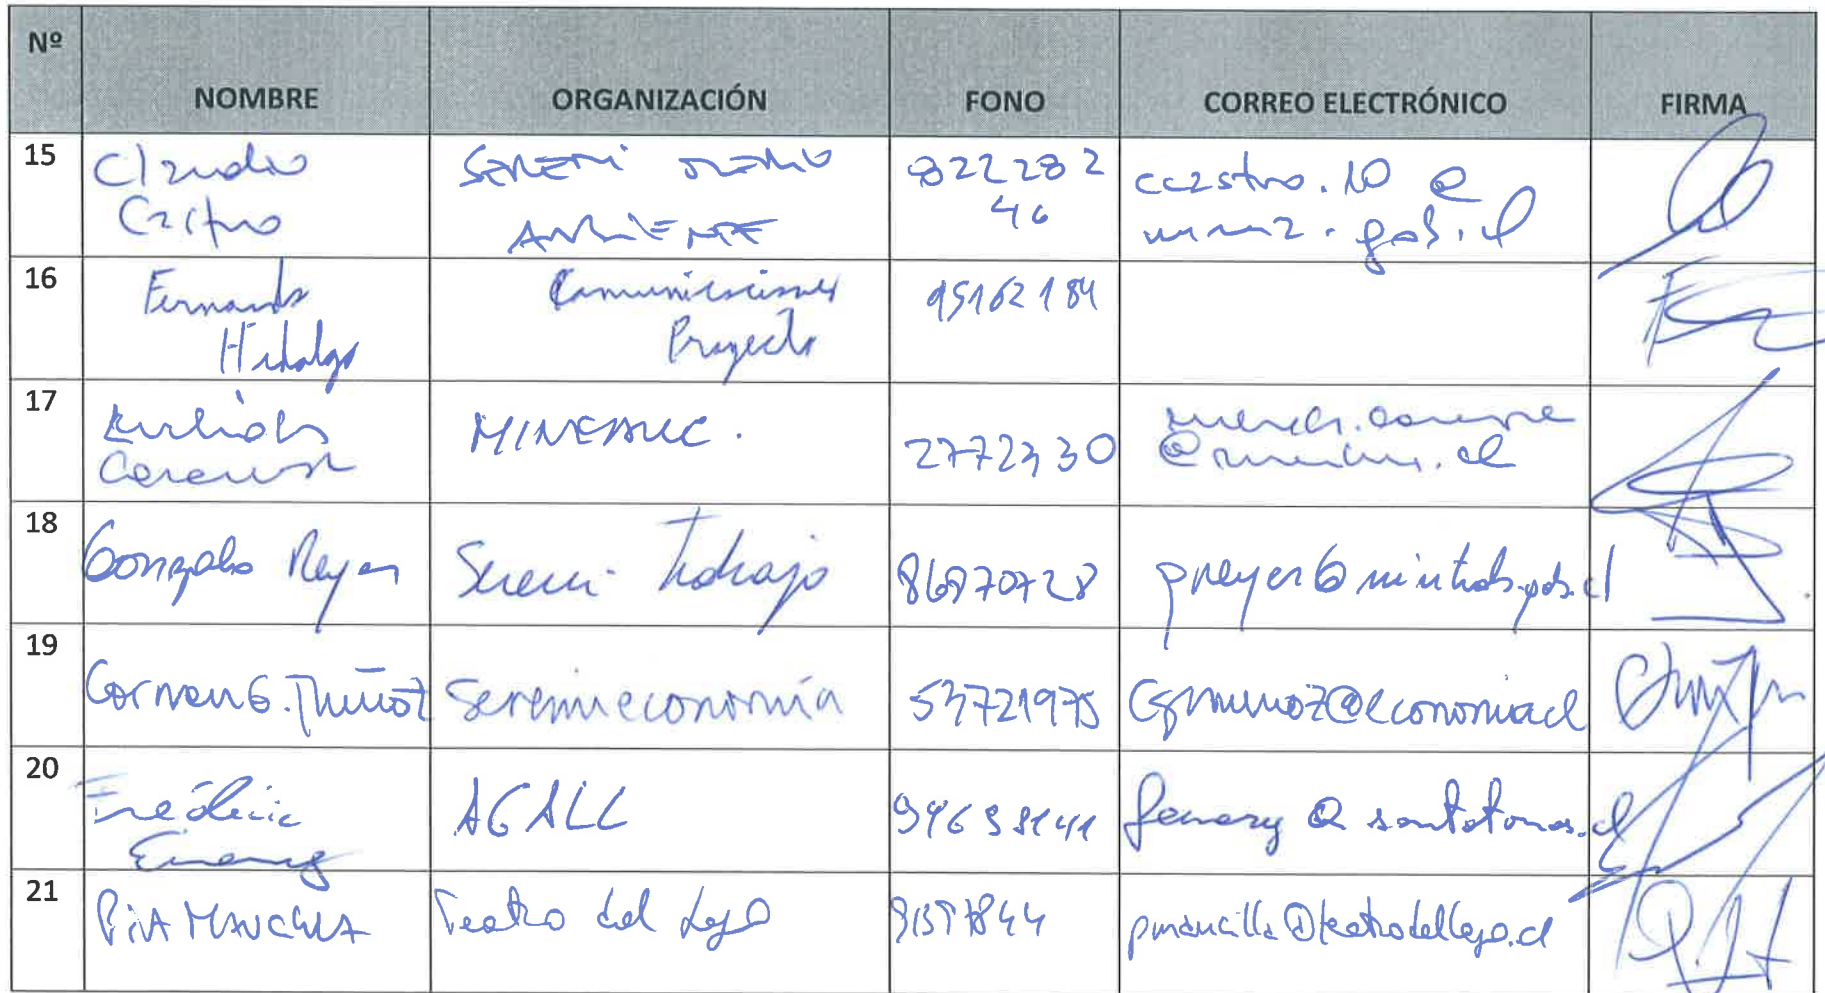 Nº NOMBRE ORGANIZACIÓN FONO CORREO ELECTRÓNICO FIRMA
15 Claudio Castro SEREMI MEDIO AMBIENTE 82228246 ccastro.10@mma.gob.cl
16 Fernando Hidalgo Comunicaciones Proyecto 95162184
17 MINEDUC. 2772330
18 Gonzalo Reyes Seremi Trabajo 86870728 greyes@mintrab.gob.cl
19 Carmen G. Muñoz Seremi economía 53721975 Cgmunoz@economia.cl
20 Fréderic Emery AGALL femery@santotomas.cl
21 PIA MANCILLA Teatro del Lago pmancilla@teatrodellago.cl